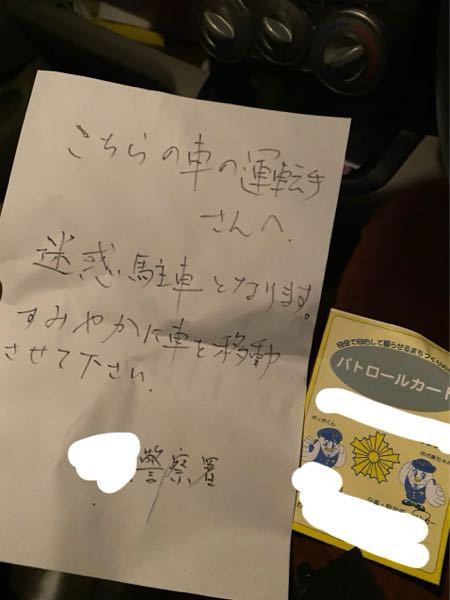 こちらの車の運転手
さんへ.
迷惑駐車となります。
すみやかに車を移動
させて下さい.
警察署
安全で安心して暮らせるまちづくりの
パトロールカード